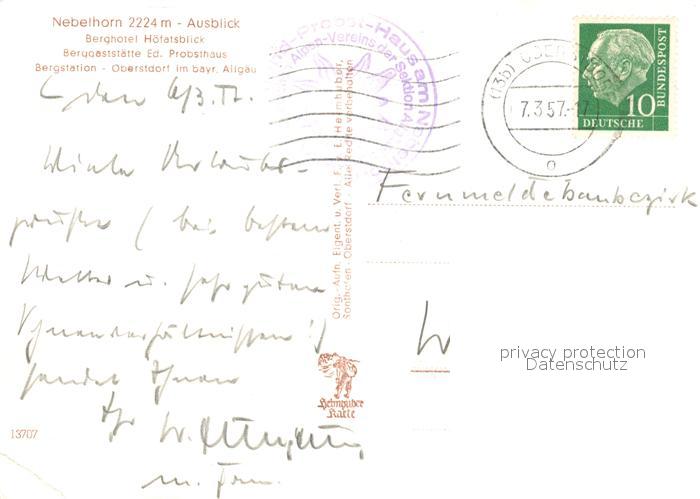 Nebelhorn 2224 m - Ausblick
Berghotel Höfatsblick
Berggaststätte Ed. Probsthaus
Bergstation - Oberstdorf im bayr. Allgäu
d-Probst-Haus am
Alpen-Vereins der Sektion
(13b) OBERSTDORF
7.3.57.-17
a
10
DEUTSCHE
BUNDESPOST
den 6/3.57.
Winterurlaubs-
grüße (bei bestem
Wetter u. sehr guten
Schneeverhältnissen!)
sendet Ihnen
Ihr
u. Frau.
Orig.-Aufn. Eigent. u. Verl. F. u. E. Heimhuber
Sonthofen - Oberstdorf - Alle Rechte vorbehalten
Heimhuber
Karte
13707
Fernmeldebaubezirk
privacy protection
Datenschutz